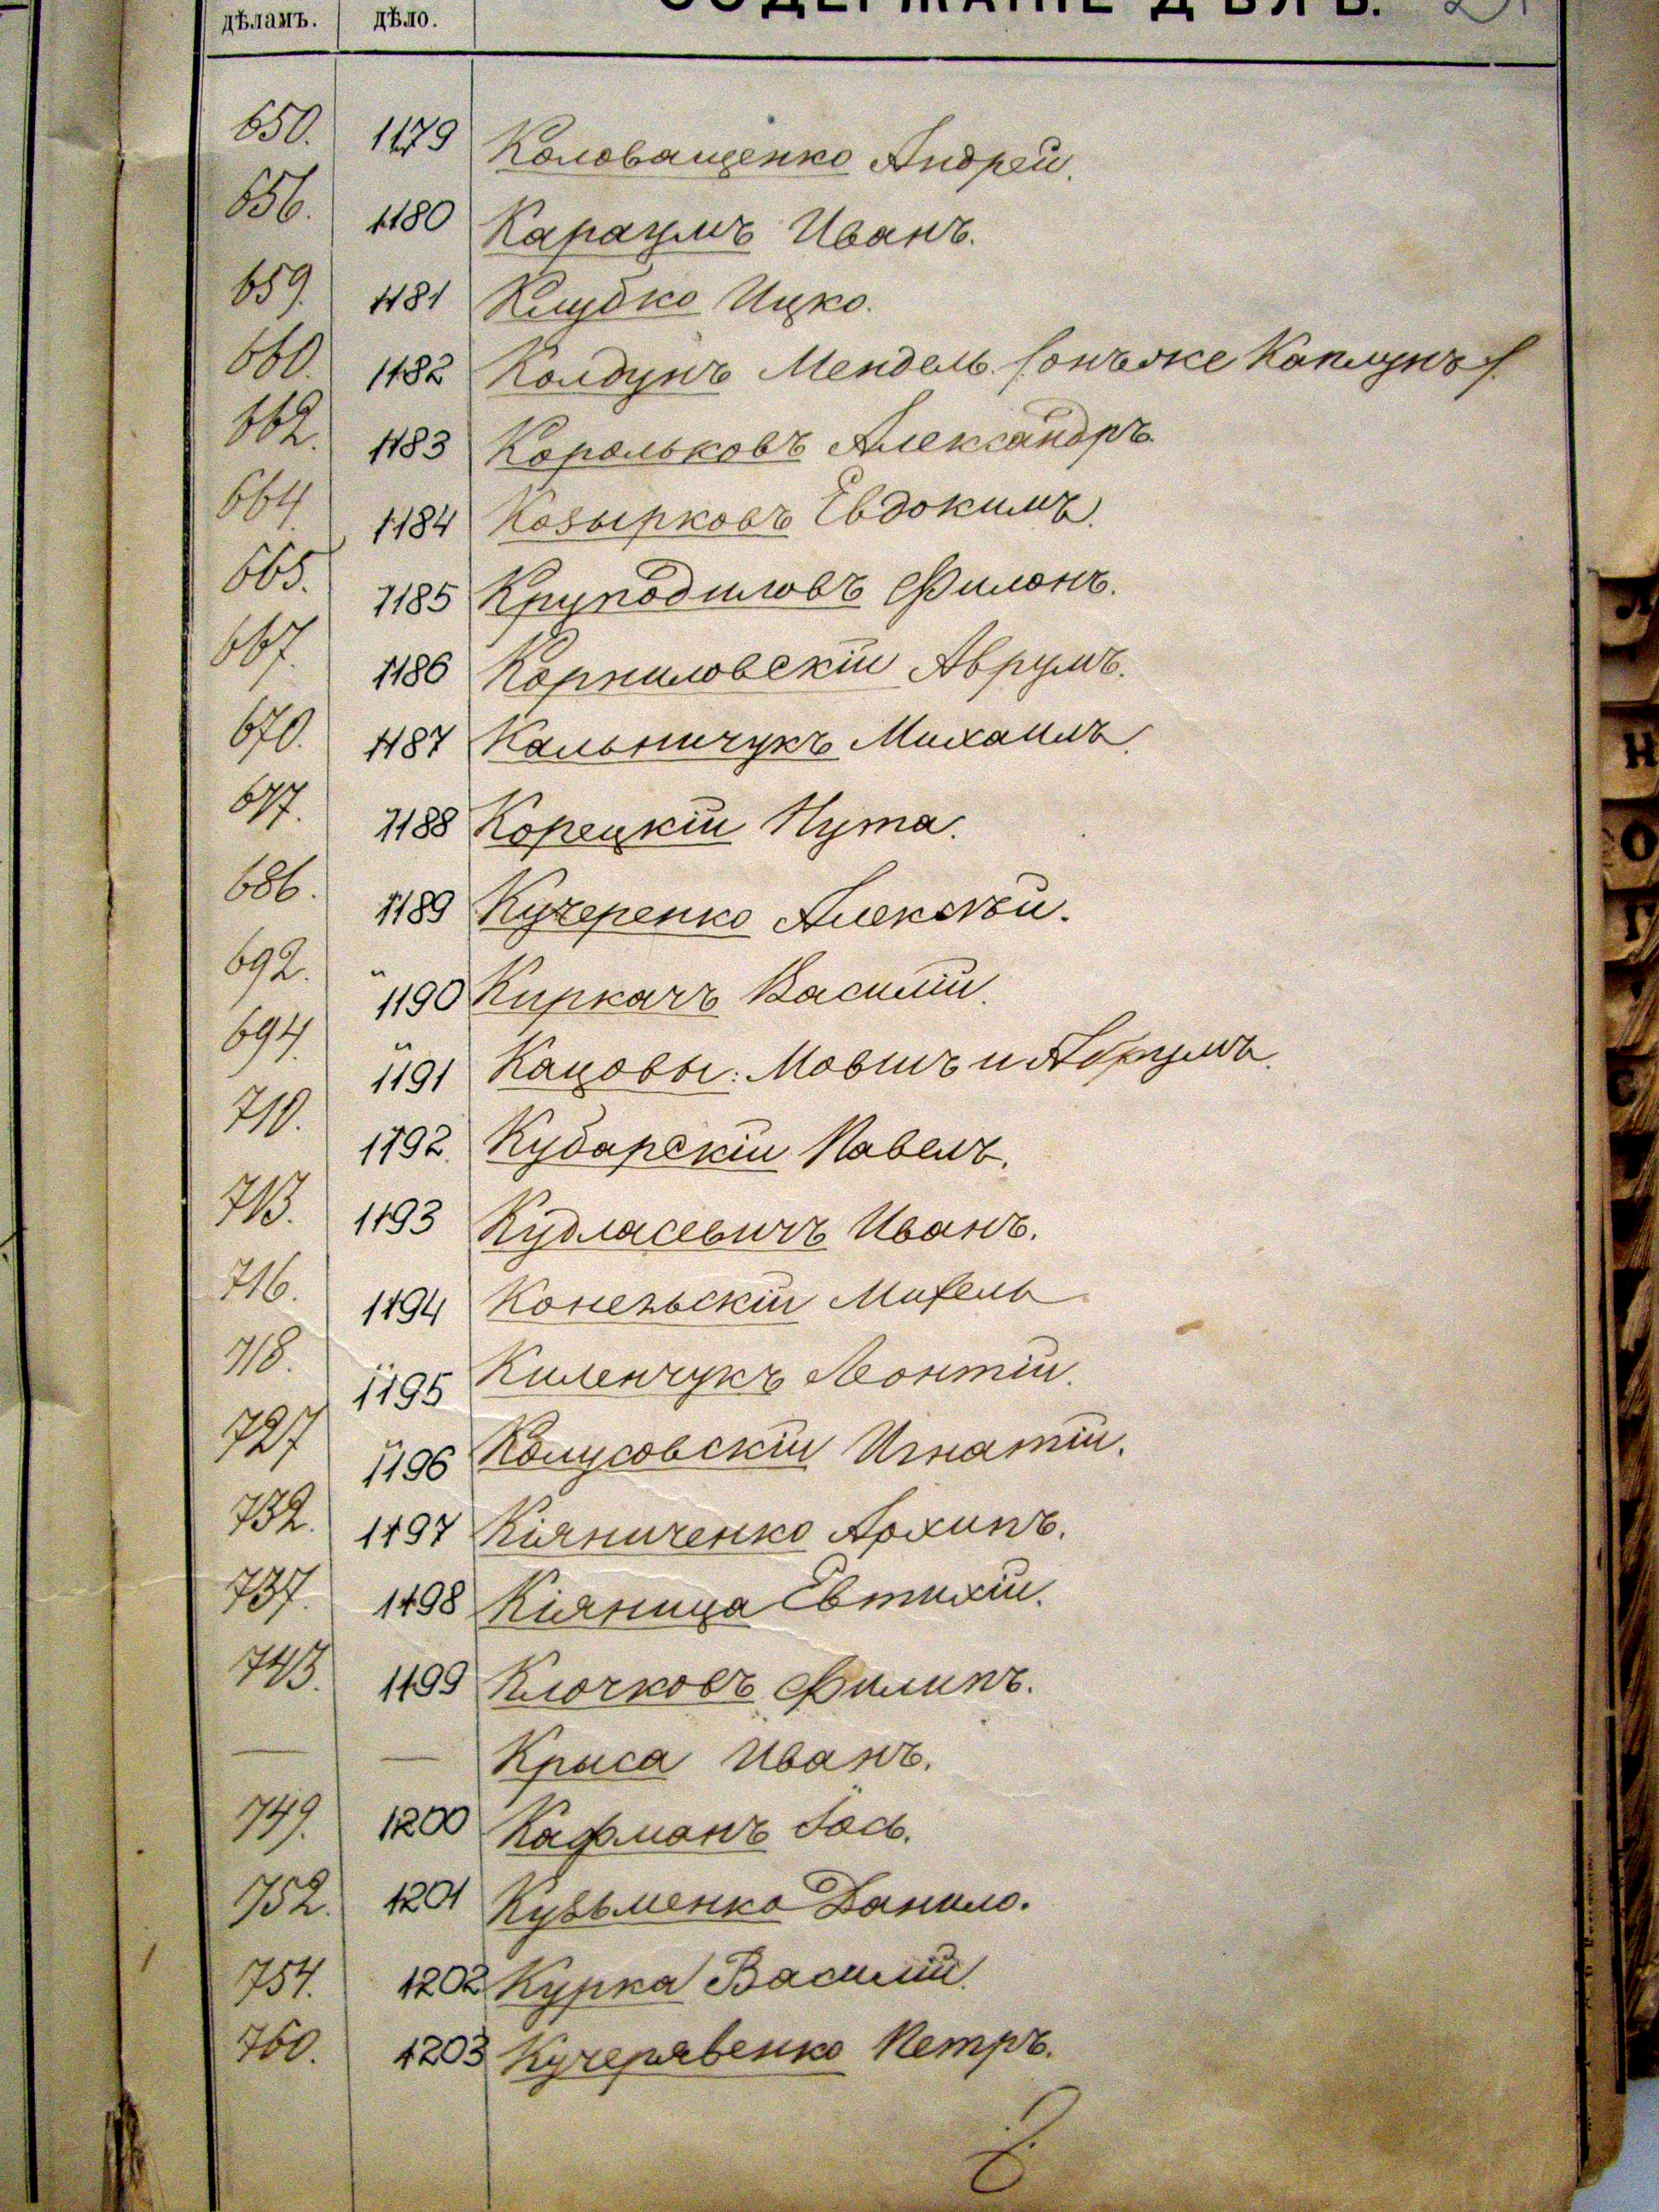 дѣламъ. дѣло. СОДЕРЖАНІЕ ДѢЛЪ.
650. 1179 Коловащенко Андрей.
656. 1180 Караулъ Иванъ.
659. 1181 Клубко Ицко.
660. 1182 Колдунъ Мендель. (онъ же Каплунъ).
662. 1183 Корольковъ Александръ.
664. 1184 Козырковъ Евдокимъ.
665. 1185 Круподиловъ Филонъ.
667. 1186 Корниловскій Аврумъ.
670. 1187 Кальничукъ Михаилъ.
677. 1188 Корецкій Нута.
686. 1189 Кучеренко Алексѣй.
692. 1190 Киркачъ Василій.
694. 1191 Кацовы: Мовшъ и Аврумъ.
710. 1192. Кубарскій Павелъ.
713. 1193 Кудласевичъ Иванъ.
716. 1194 Конельскій Михель
718. 1195 Киленчукъ Леонтій.
727 1196 Колусовскій Игнатій.
732. 1197 Кіяниченко Архипъ.
737. 1198 Кіяница Евтихій.
743. 1199 Клочковъ Филипъ.
— — Крыса Иванъ.
749. 1200 Кафманъ Іось.
752. 1201 Кузьменко Данило.
754. 1202 Курка Василій.
760. 1203 Кучерявенко Петръ.
Н
О
П
С